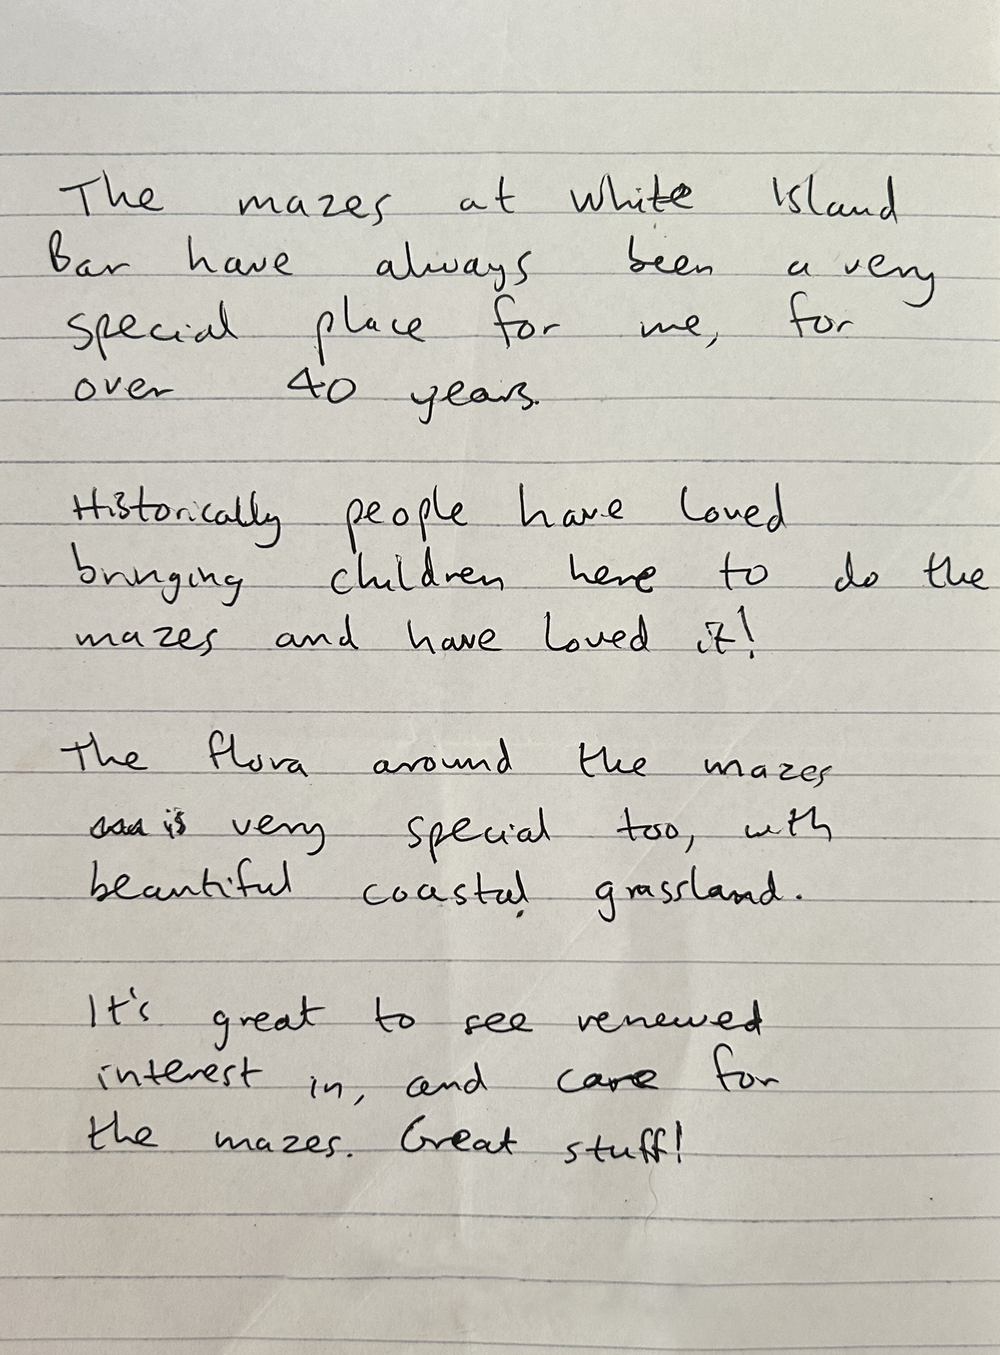 The mazes at White Island
Bar have always been a very
special place for me, for
over 40 years.
Historically people have loved
bringing children here to do the
mazes and have loved it!
The flora around the mazes
is very special too, with
beautiful coastal grassland.
It's great to see renewed
interest in, and care for
the mazes. Great stuff!